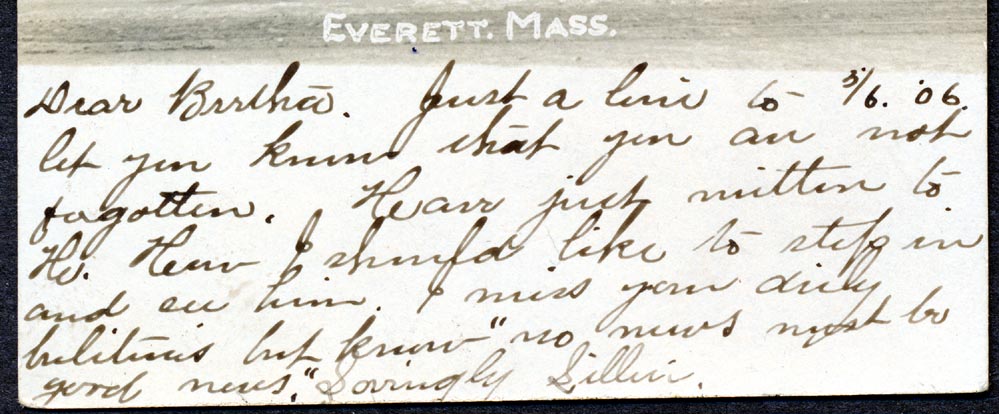 EVERETT. MASS.
Dear Bertha. Just a line to 5/6. '06.
let you know that you are not
fogotten. Have just written to
He. How I should like to step in
and see him. I miss your daily
bulitins but know "no news must be
good news." Lovingly Lillie.